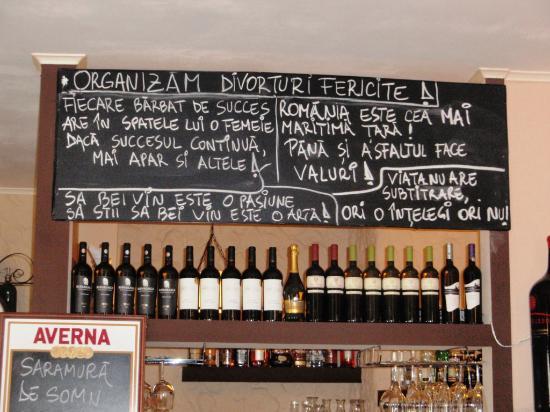 * ORGANIZĂM DIVORȚURI FERICITE!
FIECARE BĂRBAT DE SUCCES
ARE ÎN SPATELE LUI O FEMEIE
DACĂ SUCCESUL CONTINUĂ,
MAI APAR SI ALTELE!
ROMÂNIA ESTE CEA MAI
MARITIMĂ ȚARĂ!
PĂNĂ ȘI ASFALTUL FACE
VALURI!
VIAȚA NU ARE
SUBTITRARE,
ORI O ÎNȚELEGI ORI NU!
SĂ BEI VIN ESTE O PASIUNE
SĂ STII SĂ BEI VIN ESTE O ARTĂ!
AVERNA
SARAMURĂ
DE SOMN